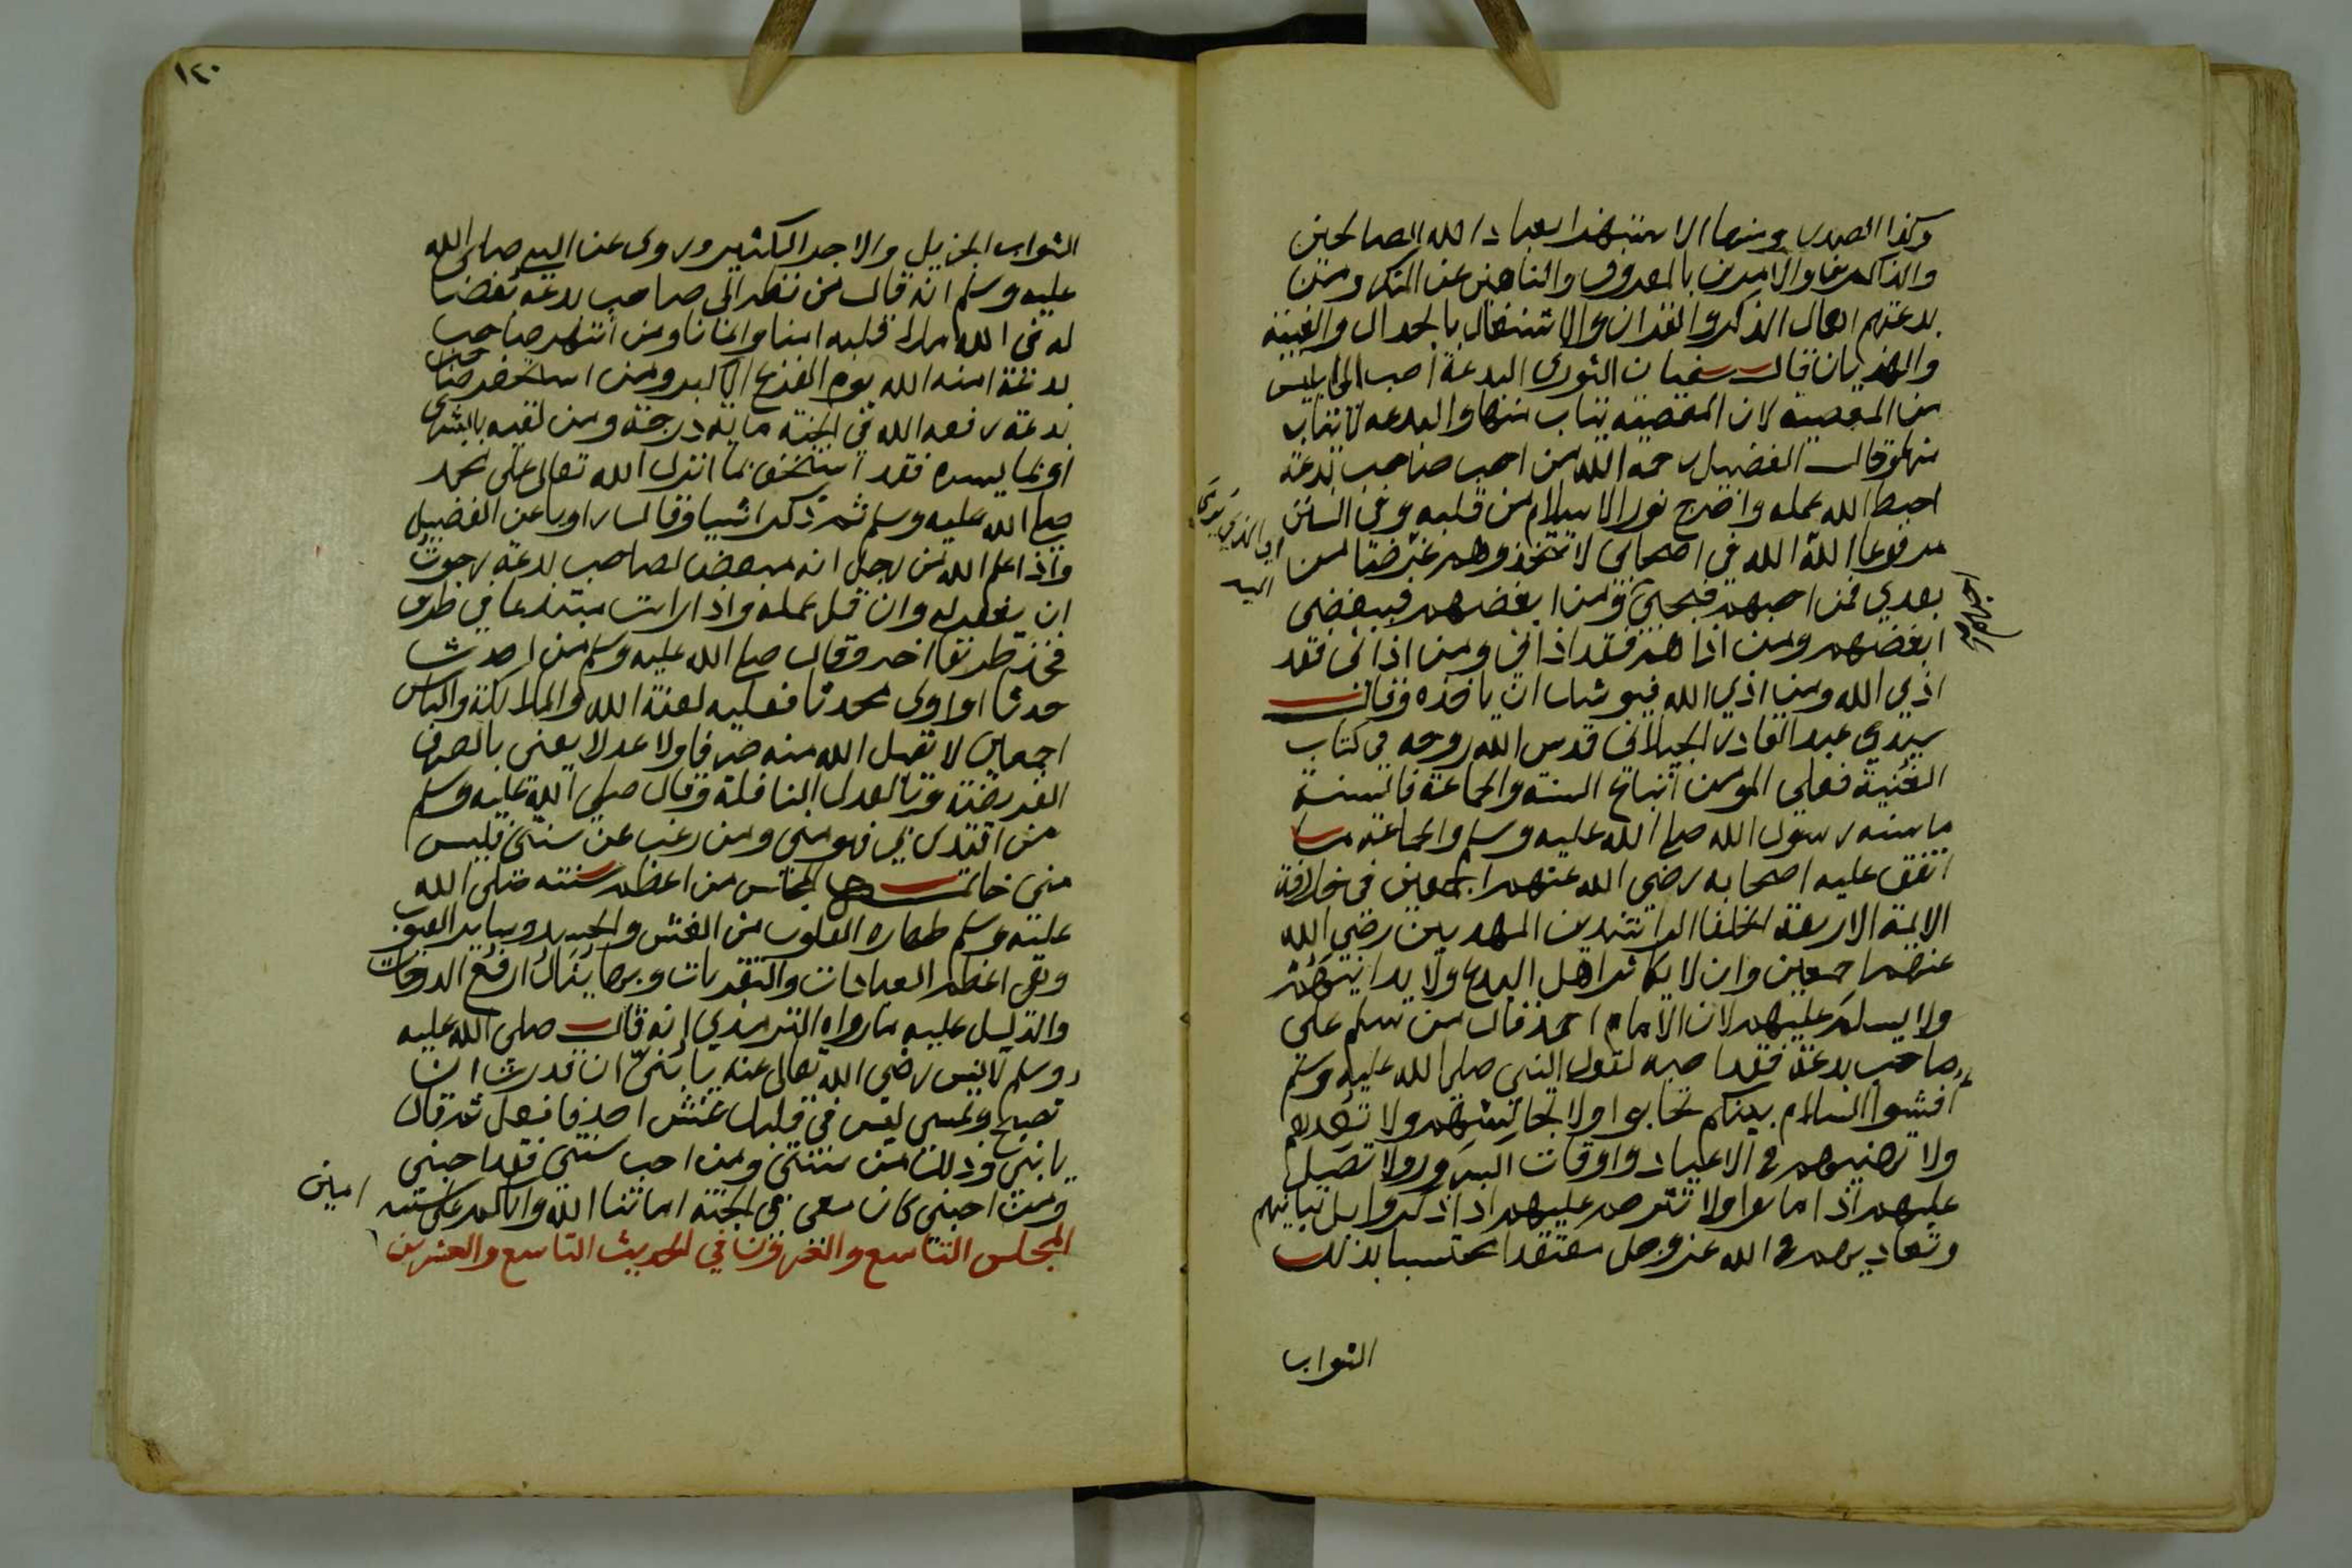 وكذا الصدر ومنها الاستهزا بعباد الله الصالحين
والذاكرين والآمرين بالمعروف والناهين عن المنكر ومن
بدعتهم اهمال الذكر والقران والاشتغال بالجدال والغيبة
والهذيان قال سفيان الثوري البدعة احب الى ابليس
من المعصية لان المعصية يتاب منها والبدعه لا يتاب
منها وقال الفضيل رحمه الله من احب صاحب بدعة
احبط الله عمله واخرج نور الاسلام من قلبه وفي السنن
مرفوعا الله الله في اصحابي لا تتخذوهم غرضا من
بعدي فمن احبهم فبحبي ومن ابغضهم فببغضي
ابغضهم ومن اذاهم فقد اذاني ومن اذاني فقد
اذي الله ومن اذي الله فيوشك ان ياخذه وقال
سيدي عبد القادر الجيلاني قدس الله روحه في كتاب
الغنية فعلى المومن اتباع السنة والجماعة فالسنة
ما سنه رسول الله صلى الله عليه وسلم والجماعة ما
اتفق عليه اصحابه رضي الله عنهم اجمعين في خلافة
الايمة الاربعة الخلفا الراشدين المهديين رضي الله
عنهم اجمعين وان لا يكاثر اهل البدع ولا يدانيهم
ولا يسلم عليهم لان الامام احمد قال من سلم على
صاحب بدعة فقد احبه لقول النبي صلى الله عليه وسلم
افشوا السلام بينكم تحابوا ولا تجالسهم ولا تقربهم
ولا تهنيهم في الاعياد واوقات السرور ولا تصلي
عليهم اذا ماتوا ولا تترحم عليهم اذا ذكروا بل تباينهم
وتعاديهم في الله عز وجل معتقدا محتسبا بذلك
الثواب
احبهم
١٢٠
الثواب الجزيل والاجر الكثير وروى عن النبي صلى الله
عليه وسلم انه قال من نظر الى صاحب بدعة بغضا
له في الله ملا قلبه امنا وايمانا ومن انتهر صاحب
بدعة امنه الله يوم الفزع الاكبر ومن استحقر صاحب
بدعة رفعه الله في الجنة ماية درجة ومن لقيه بالبشرى
او بما يسره فقد استخف بما انزل الله تعالى على محمد
صلى الله عليه وسلم ثم ذكر اشيا وقال راويا عن الفضيل
واذا علم الله من رجل انه مبغض لصاحب بدعة رجوت
ان يغفر له وان قل عمله واذا رايت مبتدعا في طريق
فخذ طريقا اخر وقال صلى الله عليه وسلم من احدث
حدثا او اوى محدثا فعليه لعنة الله والملائكة والناس
اجمعين لا يقبل الله منه صرفا ولا عدلا يعني بالصرف
الفريضة وبالعدل النافلة وقال صلى الله عليه وسلم
من اقتدى بي فهو مني ومن رغب عن سنتي فليس
مني خاتمة المجلس من اعظم سنته صلى الله
عليه وسلم طهاره القلوب من الغش والحسد وساير العيوب
وهي اعظم العبادات والتقربات وبها ينال ارفع الدرجات
والدليل عليه ما رواه الترمذي انه قال صلى الله عليه
وسلم لانس رضي الله تعالى عنه يا بني ان قدرت ان
تصبح وتمسي ليس في قلبك غش احد فافعل ثم قال
يا بني وذلك من سنتي ومن احب سنتي فقد احبني
ومن احبني كان معي في الجنة اماتنا الله واياكم على سنته
امين
المجلس التاسع والعشرون في الحديث التاسع والعشرين